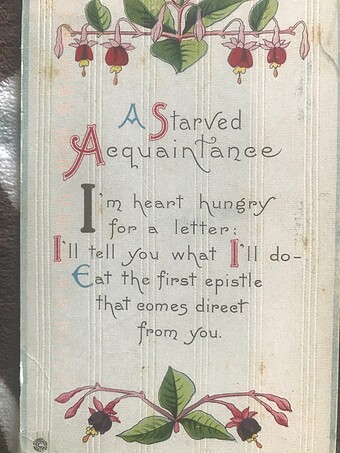 A Starved
Acquaintance
I'm heart hungry
for a letter:
I'll tell you what I'll do-
Eat the first epistle
that comes direct
from you.